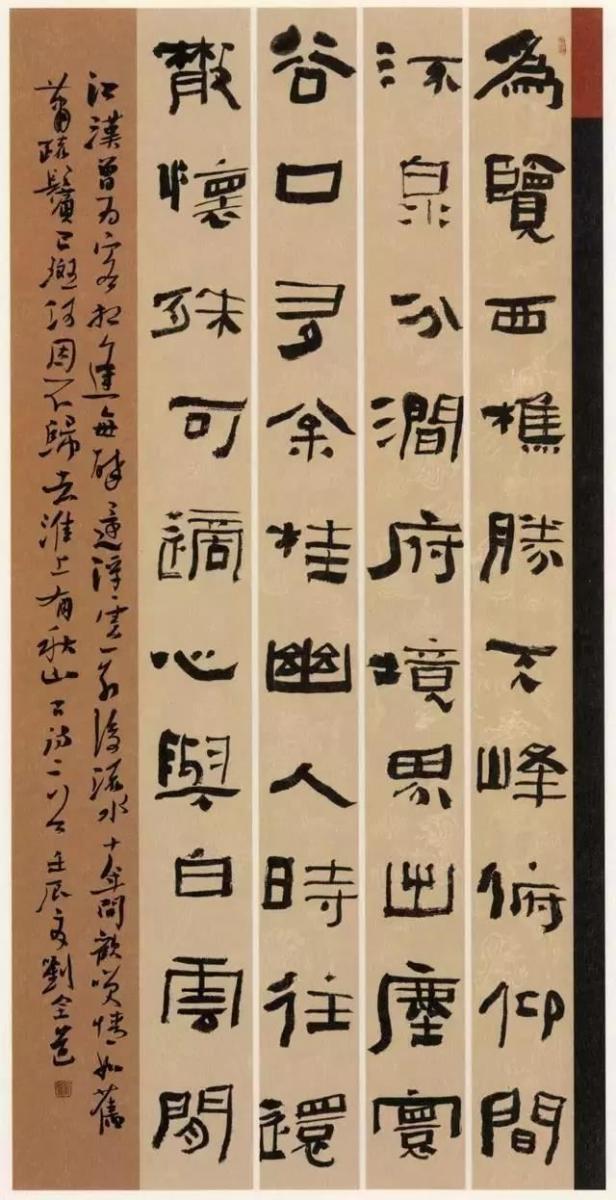 為覽西樵勝天峰俯仰間
流泉分澗府境界出塵寰
谷口多余桂幽人時往還
散懷殊可適心與白雲閒
江漢曾為客相逢每醉還浮雲一別後流水十年間歡笑情如舊
蕭疏鬢已斑何因不歸去淮上有秋山古詩二首壬辰夏劉全